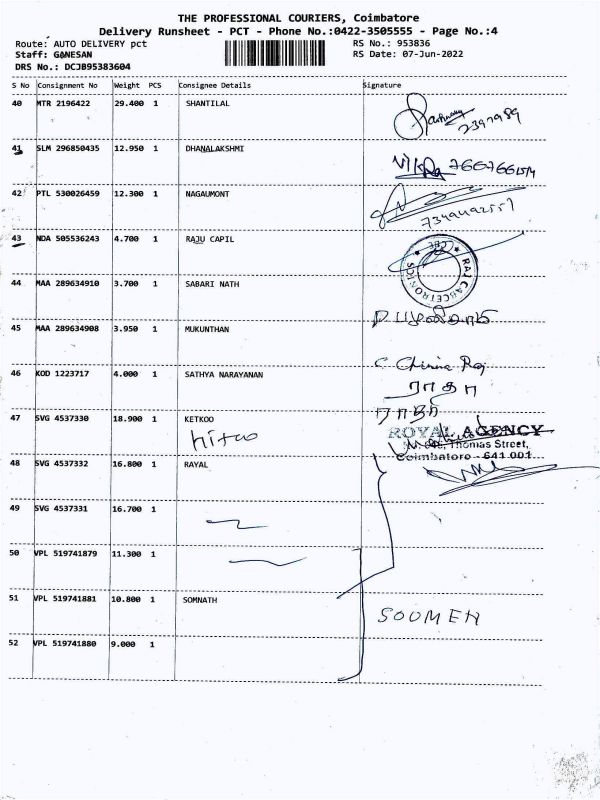 THE PROFESSIONAL COURIERS, Coimbatore
Delivery Runsheet - PCT - Phone No.:0422-3505555 - Page No.:4
Route: AUTO DELIVERY pct RS No.: 953836
Staff: GANESAN RS Date: 07-Jun-2022
DRS No.: DCJB95383604
S No Consignment No Weight PCS Consignee Details Signature
40 MTR 2196422 29.400 1 SHANTILAL
41 SLM 296850435 12.950 1 DHANALAKSHMI
42 PTL 530026459 12.300 1 NAGAUMONT
43 NDA 505536243 4.700 1 RAJU CAPIL
44 MAA 289634910 3.700 1 SABARI NATH
45 MAA 289634908 3.950 1 MUKUNTHAN
C
46 KOD 1223717 4.000 1 SATHYA NARAYANAN
ராதா
47 SVG 4537330 18.900 1 KETKOO
ராதா
ROYAL AGENCY
Thomas Street,
Coimbatore - 641 001
48 SVG 4537332 16.800 1 RAYAL
49 SVG 4537331 16.700 1
50 VPL 519741879 11.300 1
51 VPL 519741881 10.800 1 SOMNATH
SOOMEN
52 VPL 519741880 9.000 1